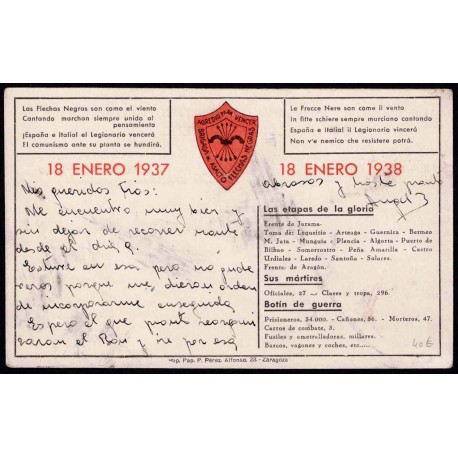 Las Flechas Negras son como el viento
Cantando marchan siempre unida al
pensamiento
¡España e Italia! el Legionario vencerá
El comunismo ante su planta se hundirá.
AGREDIR PARA VENCER
BRIGADA DE ASALTO FLECHAS NEGRAS
Le Frecce Nere sono come il vento
In fitte schiere sempre marciano cantando
España e Italia! il Legionario vincerá
Non v'e nemico che resistere potrá.
18 ENERO 1937
18 ENERO 1938
Mis queridos tios:
Me encuentro muy bien y
sin dejar de recorrer
desde el dia 9.
Estuve en esa pero no pude
veros porque me dieron orden
de incorporarme enseguida
Espero el que pronto
el Bon y ire por esa
abrazos y hasta pronto
Las etapas de la gloria
Frente de Jarama.
Toma de: Lequeitio - Arteaga - Guernica - Bermeo
M. Jata - Munguia - Plencia - Algorta - Puerto de
Bilbao - Somorrostro - Peña Amarilla - Castro
Urdiales - Laredo - Santoña - Solares.
Frente de Aragón.
Sus mártires
Oficiales, 27 — Clases y tropa, 296.
Botín de guerra
Prisioneros, 34.000. - Cañones, 56. - Morteros, 47.
Carros de combate, 3.
Fusiles y ametralladoras, millares.
Barcos, vagones y coches, etc.....
40€
Imp. Pap. P. Pérez. Alfonso, 23.-Zaragoza